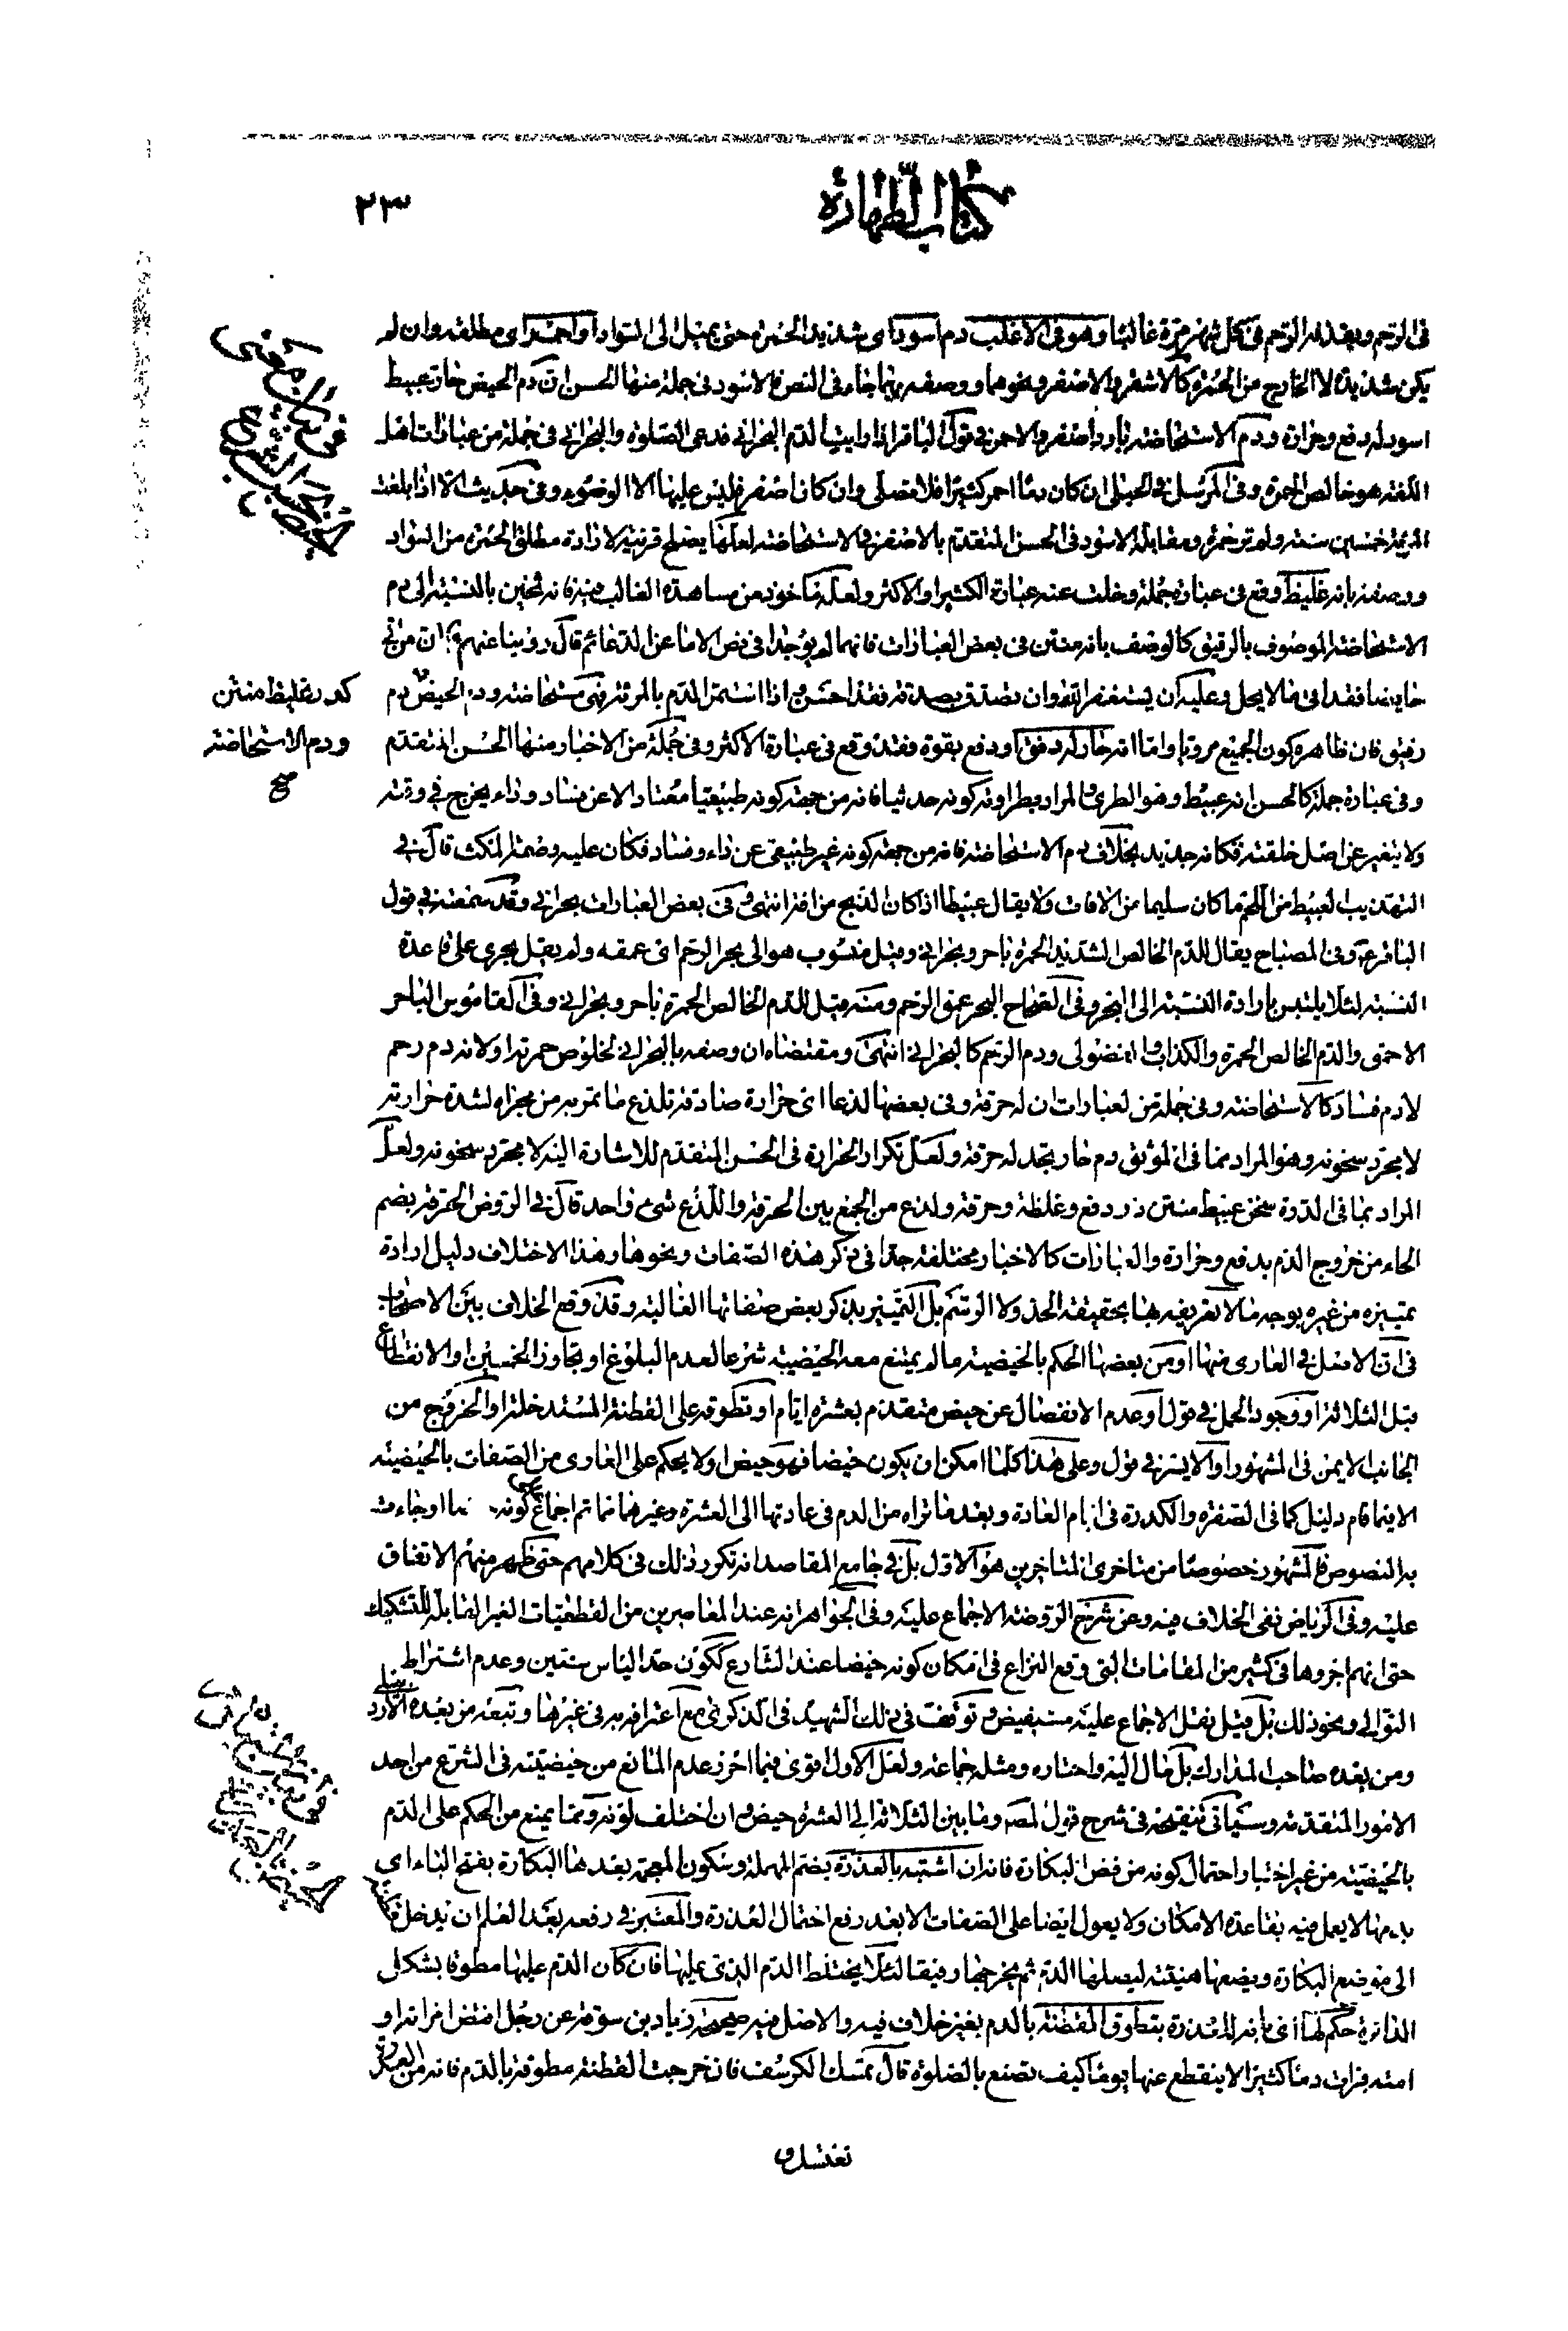 كتاب الطهارة
٢٣
فى الرحم ويقذفه الرحم فى كل شهر مرة غالبا وهو فى الاغلب دم اسود اى شديد الحمرة حتى يميل الى السواد او احمر اى مطلقه وان لم
يكن شديدة لا الخارج من الحمرة كالاشقر والاصفر ونحوهما ووصفه بهما جاء فى النص فالاسود فى جملة منها الحسن ان دم الحيض حار عبيط
اسود له دفع وحرارة ودم الاستحاضة بارد اصفر والاحمر فى قول الباقر اذا رايت الدم البحرانى فدعى الصلوة والبحرانى فى جملة من عبارات اهل
اللغة هو خالص الحمرة وفى المرسل فى الحبلى ان كان دما احمر كثيرا فلا تصلى وان كان اصفر فليس عليها الا الوضوء وفى حديث الا اذا بلغت
المرئة خمسين سنة ولم تر حمرة ومقابلة الاسود فى الحسن المتقدم بالاصفر فى الاستحاضة لعلها يصلح قرينة لارادة مطلق الحمرة من السواد
ووصفه بانه غليظ وقع فى عبارة جملة وخلت عنه عبارة الكثير او الاكثر ولعله ماخوذ من مشاهدة الغالب منه فانه ثخين بالنسبة الى دم
الاستحاضة الموصوف بالرقيق كالوصف بانه منتن فى بعض العبارات فانهما لم يوجدا فى نص الا ما عن الدعائم قال روينا عنهم ع ان من اتى
حايضا فقد اتى ما لا يحل وعليه ان يستغفر الله وان تصدق بصدقة فقد احسن واذا استمر الدم بالمرئة فهى مستحاضة ودم الحيض دم
كدر غليظ منتن
ودم الاستحاضة
صح
رقيق فان ظاهره كون الجميع مرويا واما انه حار له دفق او دفع بقوة فقد وقع فى عبارة الاكثر وفى جملة من الاخبار منها الحسن المتقدم
وفى عبارة جملة كالحسن انه عبيط وهو الطرى والمراد بطراوته كونه حدثيا فانه من جهة كونه طبيعيا معتادا لا عن فساد وداء يخرج فى وقته
ولا يتغير عن اصل خلقته فكانه جديد بخلاف دم الاستحاضة فانه من جهة كونه غير طبيعى عن داء وفساد فكان عليه وضمة المنكث قال فى
التهذيب العبيط من اللحم ما كان سليما من الافات ولا يقال عبيط اذا كان الذبح من افة انتهى وفى بعض العبارات بحرانى وقد سمعته فى قول
الباقر ع وفى المصباح يقال للدم الخالص الشديد الحمرة باحر وبحرانى وقيل منسوب هو الى بحر الرحم اى عمقه ولم يقل بحرى على قاعدة
النسبة لئلا يلتبس بارادة النسبة الى البحر وفى الصحاح البحر عمق الرحم ومنه قيل للدم الخالص الحمرة باحر وبحرانى وفى القاموس الباحر
الاحمق والدم الخالص الحمرة والكذاب والفضولى ودم الرحم كالبحرانى انتهى ومقتضاه ان وصفه بالبحرانى لخلوص حمرته او لانه دم رحم
لا دم فساد كالاستحاضة وفى جملة من العبارات ان له حرقة وفى بعضها لذعا اى حرارة صادقة تلذع ما تمر به من مجراه لشدة حرارته
لا مجرد سخونة وهو المراد مما فى الموثق دم حار تجد له حرقة ولعل تكرار الحرارة فى الحسن المتقدم للاشارة اليه لا مجرد سخونة ولعل
المراد بما فى الدرة سخن عبيط منتن ذو دفع وغلظة وحرقة ولذع من الجمع بين الحرقة واللذع شىء واحد قال فى الروض الحرقة بضم
الحاء من خروج الدم بدفع وحرارة والعبارات كالاخبار مختلفة جدا فى ذكر هذه الصفات ونحوها وهذا الاختلاف دليل ارادة
تمييزه من غيره بوجه ما لا تعريفه هنا بحقيقة الحد ولا الرسم بل التمييز بذكر بعض صفاتها الغالبة وقد وقع الخلاف بين الاصحاب
فى ان الاصل فى العارى منها او من بعضها الحكم بالحيضية ما لم يمتنع معه الحيضية شرعا لعدم البلوغ او تجاوز الخمسين او الانقطاع
قبل الثلاثة او وجود الحمل فى قول او عدم الانفصال عن حيض متقدم بعشرة ايام او تطوقه على القطنة المستدخلة او الخروج من
الجانب الايمن فى المشهور او الايسر فى قول وعلى هذا كلما امكن ان يكون حيضا فهو حيض او لا يحكم على العارى من الصفات بالحيضية
الا فيما قام دليل كما فى الصفرة والكدرة فى ايام العادة وبعد ما تراه من الدم فى عادتها الى العشرة وغيرهما مما تم اجماع كونه او جاءت
به النصوص فالمشهور خصوصا من متاخرى المتاخرين هو الاول بل فى جامع المقاصد انه تكرر ذلك فى كلامهم حتى ظهر منهم الاتفاق
عليه وفى الرياض نفى الخلاف فيه وعن شرح الروضة الاجماع عليه وفى الجواهر انه عند المعاصرين من القطعيات الغير القابلة للتشكيك
حتى انهم اجروها فى كثير من المقامات التى وقع النزاع فى امكان كونه حيضا عند الشارع ككون حد الياس ستين وعدم اشتراط
التوالى ونحو ذلك بل قيل نقل الاجماع عليه مستفيض وتوقف فى ذلك الشهيد فى الذكرى مع اعترافه به فى غيرها وتبعه من بعده الاردبيلى
ومن بعده صاحب المدارك بل مال اليه واختاره ومثله جماعة ولعل الاول اقوى فيما احرز عدم المانع من حيضيته فى الشرع من احد
الامور المتقدمة وسياتى تنقيحه فى شرح قول المصه وما بين الثلاثة الى العشرة حيض وان اختلف لونه ومما يمنع من الحكم على الدم
بالحيضية من غير اختبار احتمال كونه من فض البكارة فانه ان اشتبه بالعذرة بضم المهملة وسكون المعجمة بعدها البكارة بفتح الباء اى
بدمها لا يعمل فيه بقاعدة الامكان ولا يعول ايضا على الصفات الا بعد رفع احتمال العذرة والمعتبر فى رفعه بعد العلم ان تدخل
الى موضع البكارة ويضعها هنيئة ليصلها الدم ثم يخرجها رفيقا لئلا يختلط الدم الذى عليها فان كان الدم عليها مطوقا بشكل
الدائرة حكم لها اى بانه للعذرة بتطوق القطنة بالدم بغير خلاف فيه والاصل فيه صحيحة زياد بن سوقة عن رجل افتض امراته او
امته فرات دما كثيرا لا ينقطع عنها يوما كيف تصنع بالصلوة قال تمسك الكرسف فان خرجت القطنة مطوقة بالدم فانه من العذرة
تغتسل و